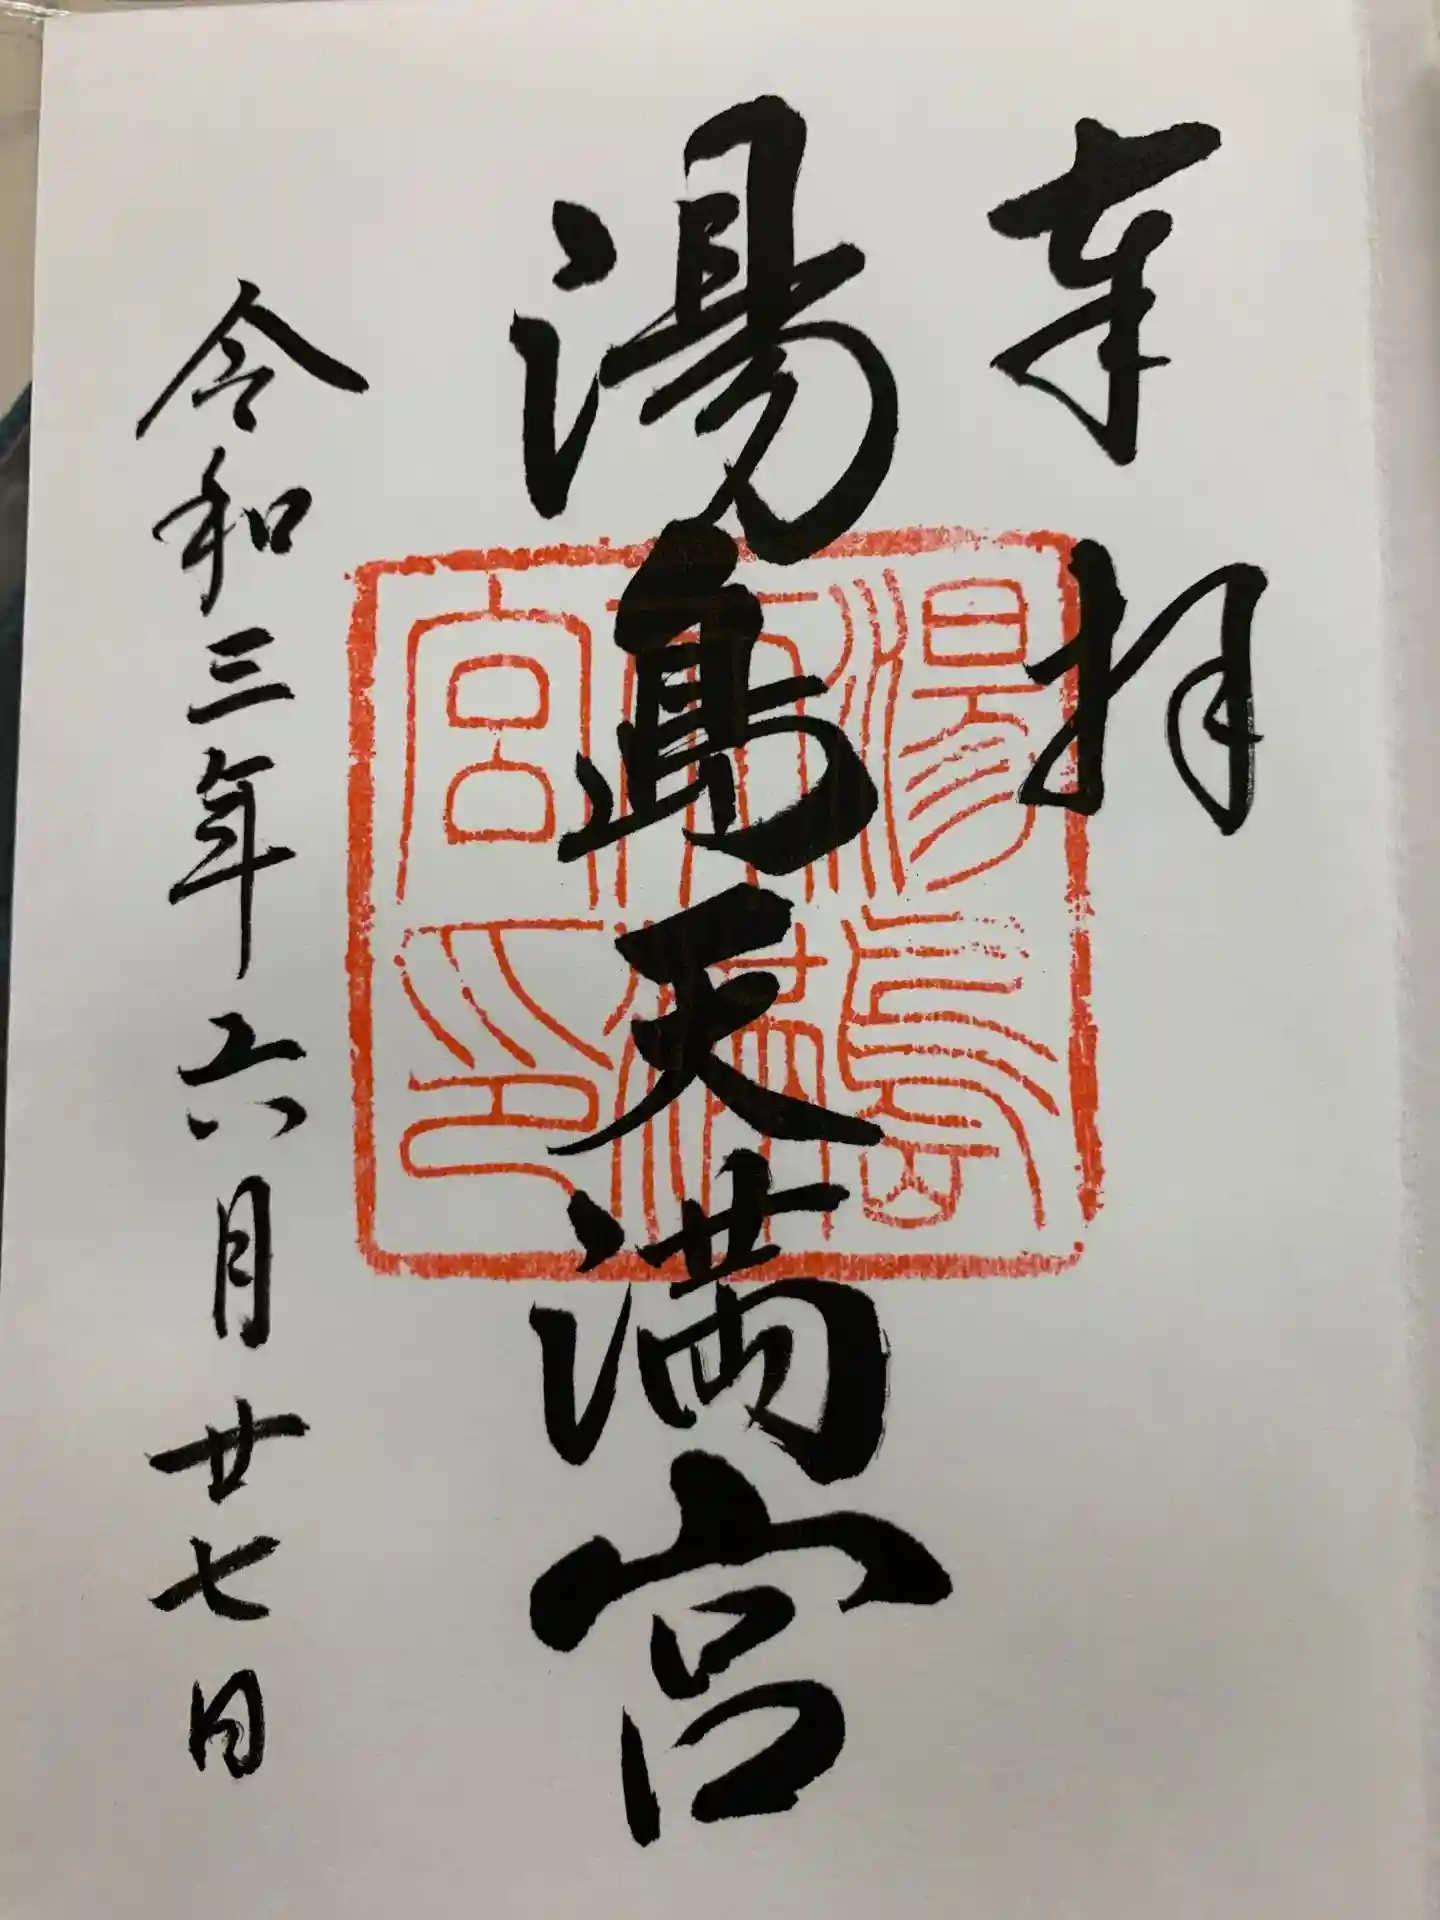 奉拝
湯島天満宮
令和三年六月廿七日
湯島
天満
宮印